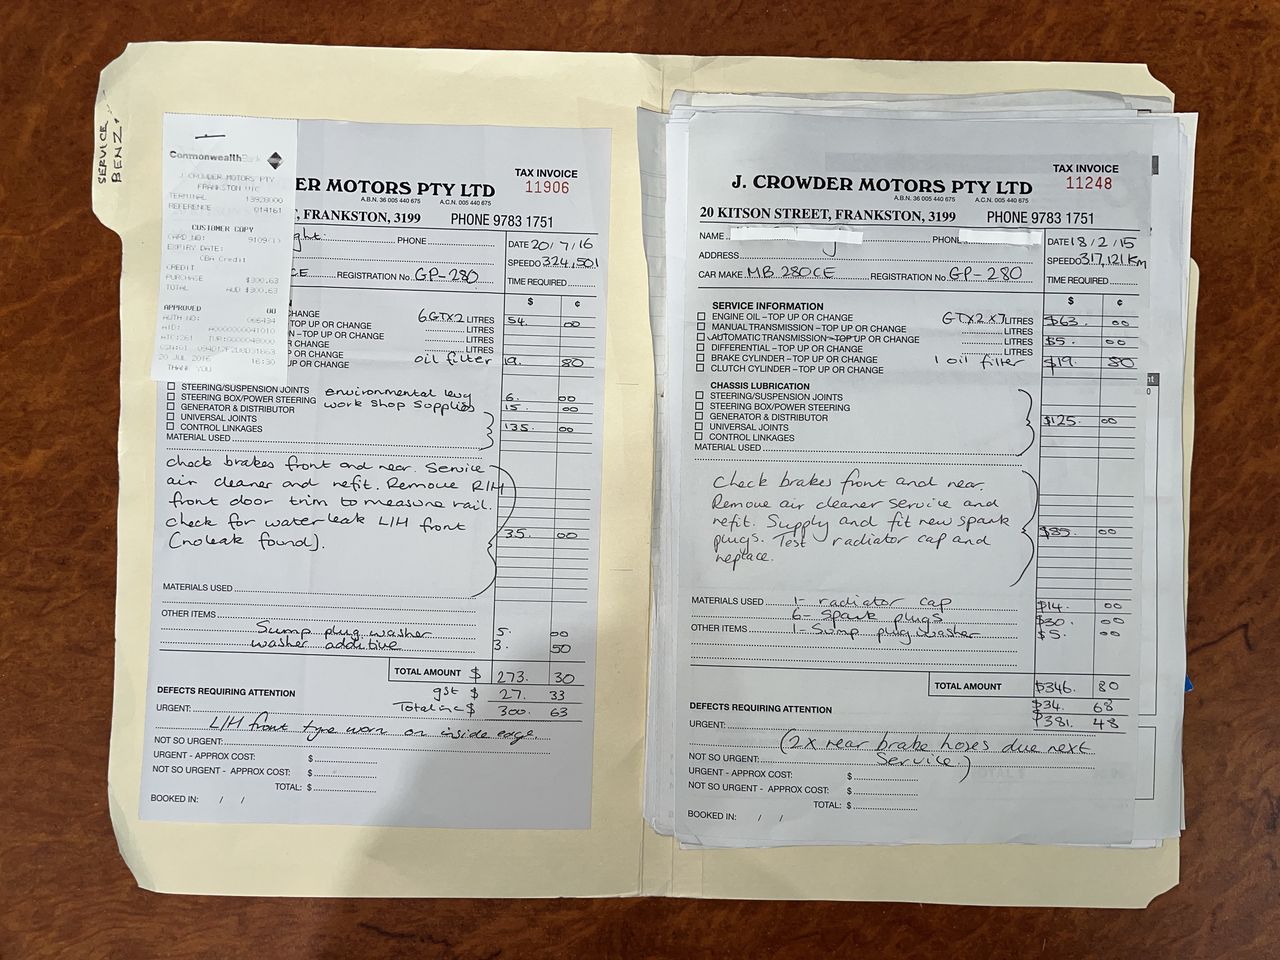 SERVICE
BENZ
CommonwealthBank
J CROWDER MOTORS PTY
FRANKSTON VIC
TERMINAL 13928000
REFERENCE 014161
CUSTOMER COPY
CARD NO: 9109(1)
EXPIRY DATE:
CBA Credit
CREDIT
PURCHASE $300.63
TOTAL AUD $300.63
APPROVED 00
AUTH NO:
AID: A0000000041010
20 JUL 2016 16:30
THANK YOU
TAX INVOICE
11906
ER MOTORS PTY LTD
A.B.N. 36 005 440 675 A.C.N. 005 440 675
, FRANKSTON, 3199 PHONE 9783 1751
ght. PHONE DATE 20/7/16
SPEEDO 324,501
CE REGISTRATION No. GP-280 TIME REQUIRED
$ ¢
N
CHANGE 6 GTX2 LITRES 54. 00
-TOP UP OR CHANGE LITRES
N -TOP UP OR CHANGE LITRES
-TOP UP OR CHANGE LITRES
P OR CHANGE oil filter 19. 80
UP OR CHANGE
STEERING/SUSPENSION JOINTS environmental levy 6. 00
STEERING BOX/POWER STEERING work shop supplies 15. 00
GENERATOR & DISTRIBUTOR
UNIVERSAL JOINTS 135. 00
CONTROL LINKAGES
MATERIAL USED
check brakes front and rear. Service
air cleaner and refit. Remove R/H
front door trim to measure rail.
check for water leak L/H front
(no leak found). 35. 00
MATERIALS USED
OTHER ITEMS
Sump plug washer 5. 00
washer additive 3. 50
TOTAL AMOUNT $ 273. 30
DEFECTS REQUIRING ATTENTION gst $ 27. 33
Total inc $ 300. 63
URGENT: L/H front tyre worn on inside edge.
NOT SO URGENT:
URGENT - APPROX COST: $
NOT SO URGENT - APPROX COST: $
TOTAL: $
BOOKED IN: / /
TAX INVOICE
11248
J. CROWDER MOTORS PTY LTD
A.B.N. 36 005 440 675 A.C.N. 005 440 675
20 KITSON STREET, FRANKSTON, 3199 PHONE 9783 1751
NAME PHONE DATE 18/2/15
ADDRESS SPEEDO 317,121 Km
CAR MAKE MB 280CE REGISTRATION No. GP-280 TIME REQUIRED
$ ¢
SERVICE INFORMATION
ENGINE OIL -TOP UP OR CHANGE GTX2 x 7 LITRES $63. 00
MANUAL TRANSMISSION -TOP UP OR CHANGE LITRES
AUTOMATIC TRANSMISSION -TOP UP OR CHANGE LITRES $5. 00
DIFFERENTIAL -TOP UP OR CHANGE LITRES
BRAKE CYLINDER -TOP UP OR CHANGE 1 oil filter $19. 80
CLUTCH CYLINDER -TOP UP OR CHANGE
CHASSIS LUBRICATION
STEERING/SUSPENSION JOINTS
STEERING BOX/POWER STEERING
GENERATOR & DISTRIBUTOR $125. 00
UNIVERSAL JOINTS
CONTROL LINKAGES
MATERIAL USED
Check brakes front and rear.
Remove air cleaner service and
refit. Supply and fit new spark
plugs. Test radiator cap and $85. 00
replace.
MATERIALS USED 1- radiator cap $14. 00
6- spark plugs $30. 00
OTHER ITEMS 1- Sump plug washer $5. 00
TOTAL AMOUNT $346. 80
$34. 68
DEFECTS REQUIRING ATTENTION $381. 48
URGENT: (2x rear brake hoses due next
NOT SO URGENT: Service.)
URGENT - APPROX COST: $
NOT SO URGENT - APPROX COST: $
TOTAL: $
BOOKED IN: / /